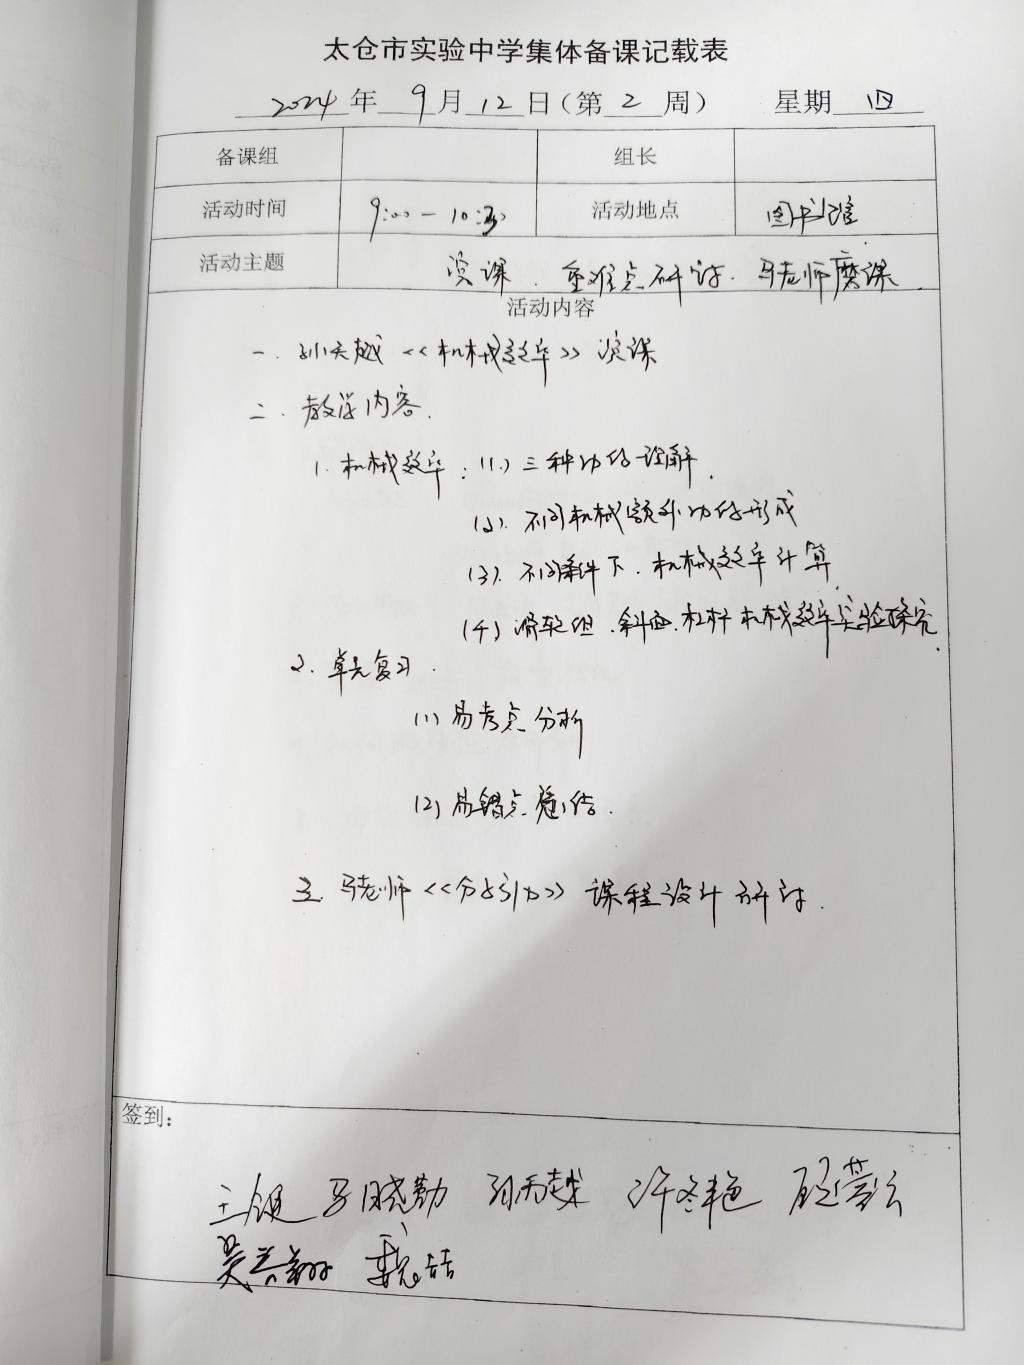 太仓市实验中学集体备课记载表
2024 年 9 月 12 日（第 2 周） 星期 四
备课组 组长
活动时间 9:00 — 10:30 活动地点 图书馆
活动主题 演课、重难点研讨、马老师磨课
活动内容
一、孙天越《机械效率》演课
二、教学内容.
1、机械效率：(1) 三种功的理解.
(2) 不同机械额外功的形成
(3) 不同条件下、机械效率计算.
(4) 滑轮组、斜面、杠杆机械效率实验探究.
2、单元复习.
(1) 易考点分析
(2) 易错点总结.
三 马老师《分子引力》课程设计研讨.
签到：
马晓勤 孙天越 许冬艳